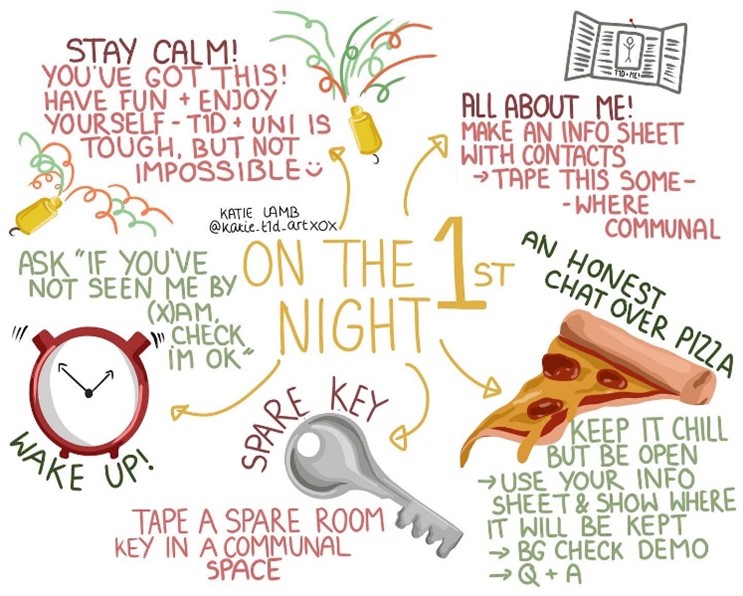 STAY CALM!
YOU'VE GOT THIS!
HAVE FUN + ENJOY
YOURSELF - T1D + UNI IS
TOUGH, BUT NOT
IMPOSSIBLE
T1D+ME!
ALL ABOUT ME!
MAKE AN INFO SHEET
WITH CONTACTS
→ TAPE THIS SOME-
-WHERE
COMMUNAL
KATIE LAMB
@katie.t1d_artxox
ON THE 1ST
NIGHT
ASK "IF YOU'VE
NOT SEEN ME BY
(X)AM,
CHECK
I'M OK"
WAKE UP!
SPARE KEY
TAPE A SPARE ROOM
KEY IN A COMMUNAL
SPACE
AN HONEST
CHAT OVER PIZZA
KEEP IT CHILL
BUT BE OPEN
→ USE YOUR INFO
SHEET & SHOW WHERE
IT WILL BE KEPT
→ BG CHECK DEMO
→ Q + A